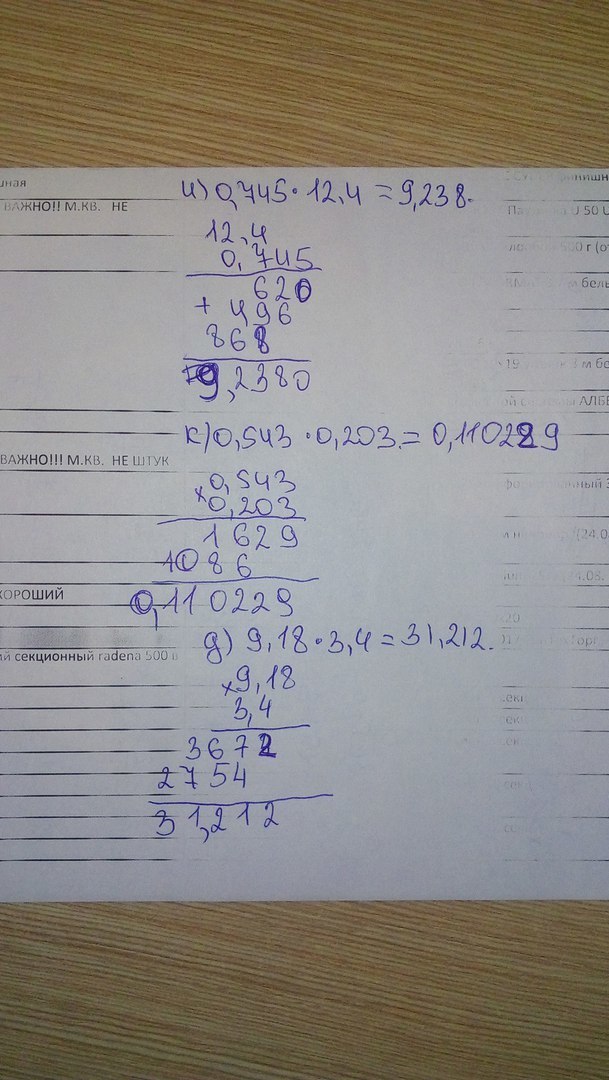 чная
ВАЖНО!! М.КВ. НЕ
и) 0,745 · 12,4 = 9,238.
12,4
0,745
620
+ 496
868
9,2380
к) 0,543 · 0,203 = 0,110229
ВАЖНО!!! М.КВ. НЕ ШТУК
× 0,543
0,203
1629
1086
ХОРОШИЙ
0,110229
д) 9,18 · 3,4 = 31,212.
ий секционный radena 500 в
× 9,18
3,4
3672
2754
31,212